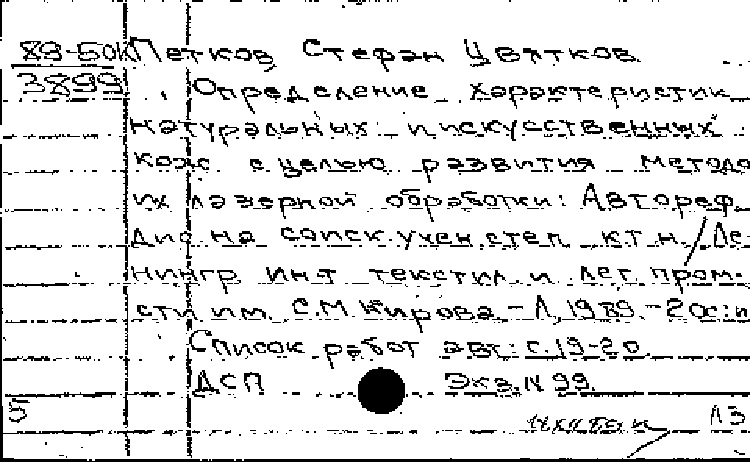 89-50к Петков Стефан Цвятков
3899 Определение характеристик
натуральных и искусственных
кож с целью развития метода
их лазерной обработки: Автореф.
дис. на соиск. учен. степ. к.т.н. / Ле-
нингр. ин-т текстил. и лег. пром-
сти им. С.М. Кирова. - Л., 1989. - 20с: и
Список работ авт.: с. 19-20.
ДСП Экз. N 99.
5
ЛЗ